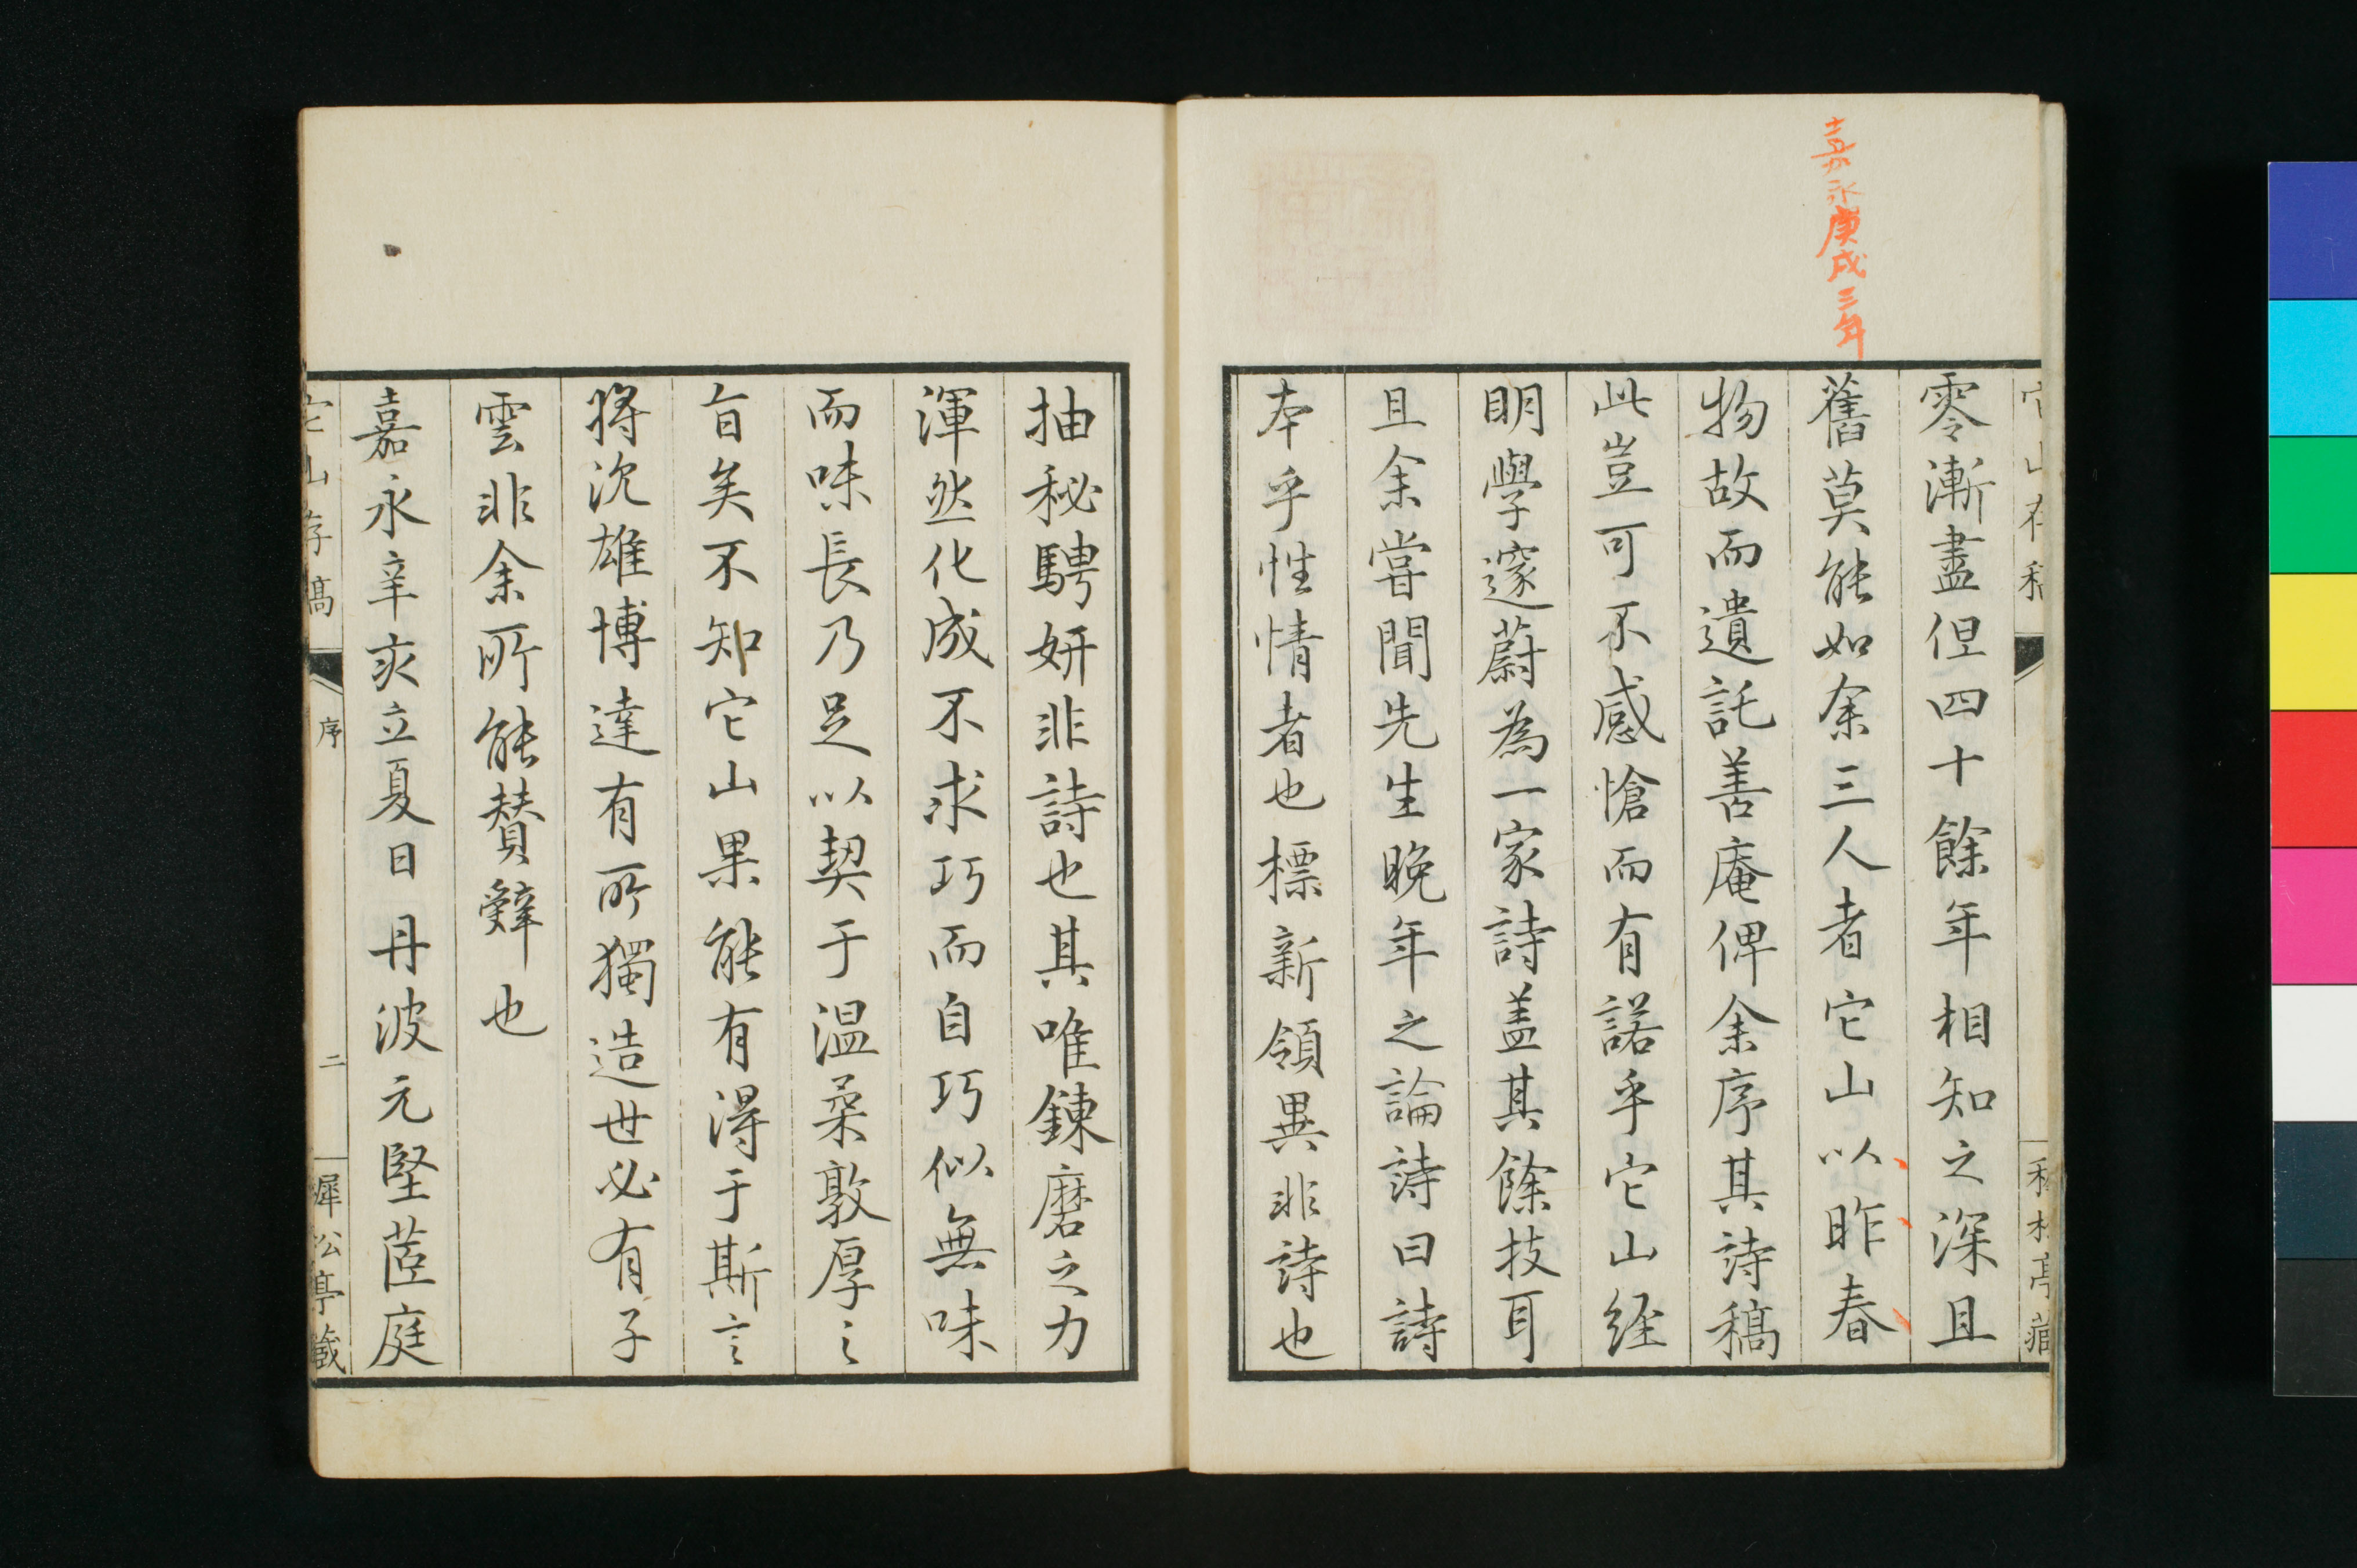 嘉永庚戌三年
零漸盡但四十餘年相知之深且
舊莫能如余三人者它山以昨春
物故而遺託善庵俾余序其詩稿
此豈可不感愴而有諾乎它山經
明學邃蔚為一家詩盖其餘技耳
且余嘗聞先生晚年之論詩曰詩
本乎性情者也標新領異非詩也
抽秘騁妍非詩也其唯鍊磨之力
渾然化成不求巧而自巧似無味
而味長乃足以契于温柔敦厚之
旨矣不知它山果能有得于斯言
將沈雄博達有所獨造世必有子
雲非余所能賛辭也
嘉永辛亥立夏日丹波元堅茝庭
它山存稿
序
二
犀公亭藏